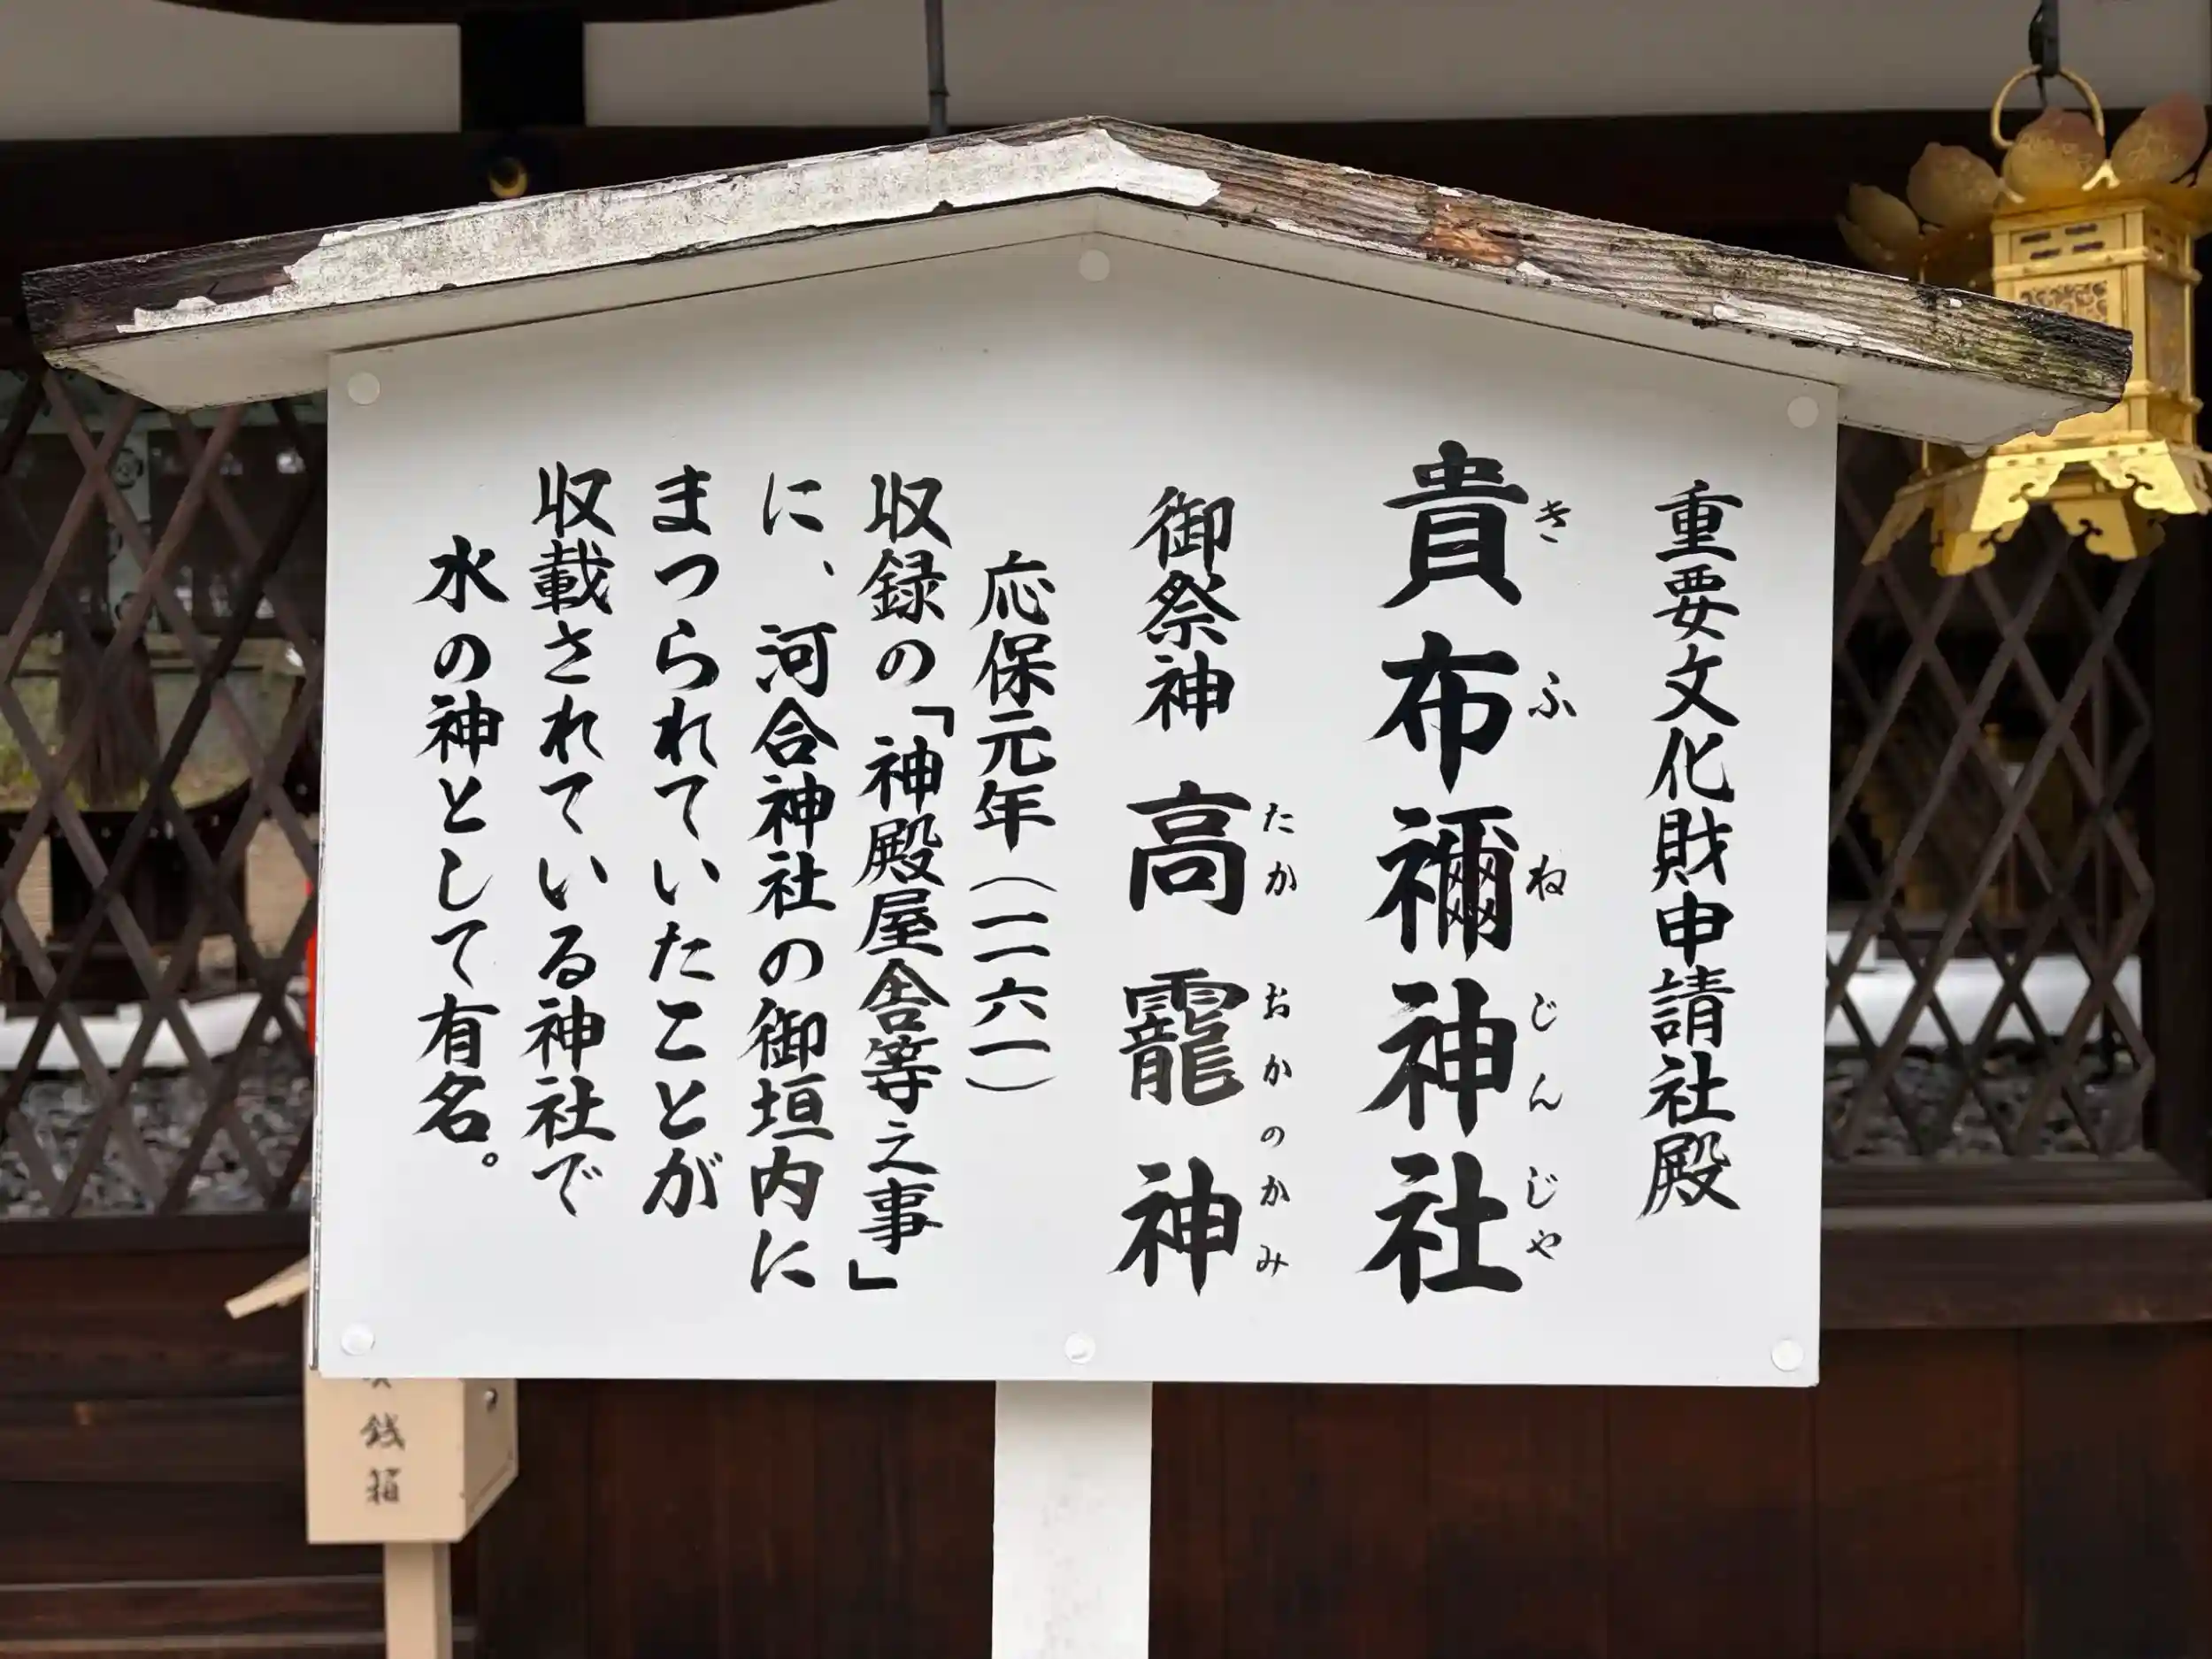 重要文化財申請社殿
貴布禰神社
きふねじんじや
御祭神 高龗神
たかおかのかみ
応保元年(一一六一)
収録の「神殿屋舎等之事」
に、河合神社の御垣内に
まつられていたことが
収載されている神社で
水の神として有名。
銭箱